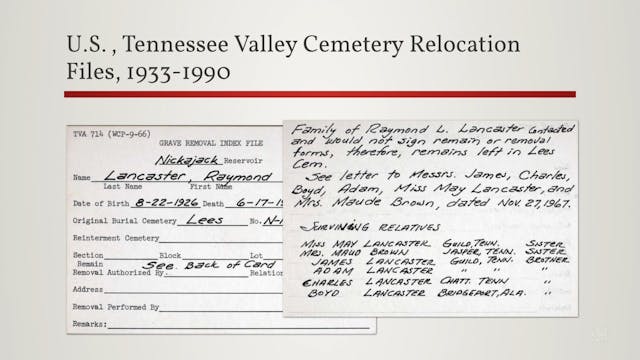 U.S. , Tennessee Valley Cemetery Relocation
Files, 1933-1990
TVA 714 (WCP-9-66)
GRAVE REMOVAL INDEX FILE
Nickajack Reservoir
Name Lancaster, Raymond
Last Name First Name
Date of Birth 8-22-1926 Death 6-17-19
Original Burial Cemetery Lees No. N-1
Reinterment Cemetery
Section Block Lot
Remain See Back of Card
Removal Authorized By Relation
Address
Removal Performed By
Remarks:
Family of Raymond L. Lancaster contacted
and would not sign remain or removal
forms, therefore, remains left in Lees
Cem.
See letter to Messrs. James, Charles,
Boyd, Adam, Miss May Lancaster, and
Mrs. Maude Brown, dated Nov. 27, 1967.
SURVIVING RELATIVES
MISS MAY LANCASTER GUILD, TENN. SISTER
MRS. MAUD BROWN JASPER, TENN. SISTER
JAMES LANCASTER GUILD, TENN. BROTHER
ADAM LANCASTER " " "
CHARLES LANCASTER CHATT. TENN "
BOYD LANCASTER BRIDGEPORT, ALA. "